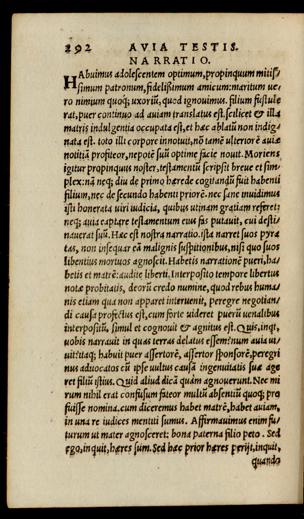 292 AVIA TESTIS.
NARRATIO.
HAbuimus adolescentem optimum, propinquum mitis‐
simum patronum, fidelißimum amicum: maritum ue‐
ro nimium quoq; uxoriũ, quod ignouimus. filium sustule
rat, puer continuo ad auiam translatus est. scilicet & illa
matris indulgentia occupata est, et hæc ablatũ non indig‐
nata est. toto illi corpore innotuit, nõ tamẽ ulteriorẽ auiæ
notitiã profiteor, nepotẽ suũ optime facie nouit. Moriens
igitur propinquus noster, testamentũ scripsit breue et sim‐
plex: nã neq; diu de primo hærede cogitandũ fuit habenti
filium, nec de secundo habenti priorẽ. nec sane inuidimus
isti honerata uiri iudicia, quibus utinam gratiam referet:
neq; auia captare testamentum eius fas putauit, cui desti‐
nauerat suũ. Hæc est nostra narratio. ista narret suos pyra
tas, non insequar eã malignis suspitionibus, nisi quo suos
libentius mortuos agnoscit. Habetis narrationẽ pueri, ha‐
betis et matrẽ: audite liberti. Interposito tempore libertus
notæ probitatis, deorũ credo numine, quod rebus huma‐
nis etiam qua non apparet interuenit, peregre negotian‐
di causa profectus est, cum forte uideret puerũ uenalibus
interpositũ, simul et cognouit & agnitus est. Quis, inqt,
uobis narrauit in quas terras delatus essem? num auia ui‐
uit? itaq; habuit puer assertorẽ, assertor sponsorẽ, peregri
nus aduocatos cũ ipse uultus causã ingenuitatis suæ age
ret filiũ istius. Quid aliud dicã quàm agnouerunt. Nec mi
rum nihil erat confusum fateor multũ absentiũ quoq; pro
fuisse nomina. cum diceremus habet matrẽ, habet auiam,
in una re iudices mentiti sumus. Affirmauimus enim fu‐
turum ut mater agnosceret: bona paterna filio peto. Sed
ego, inquit, hæres sum. Sed hæc prior hæres perijt, inquit,
quando